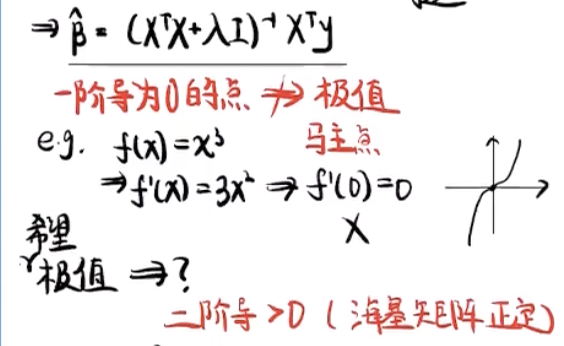 ⇒ β̂ = (XᵀX+λI)⁻¹Xᵀy
一阶导为0的点 ⇏ 极值
e.g. f(x)=x³ 驻点
⇒f'(x)=3x² ⇒ f'(0)=0
X
希望
极值 ⇒?
二阶导>0 (海基矩阵正定)